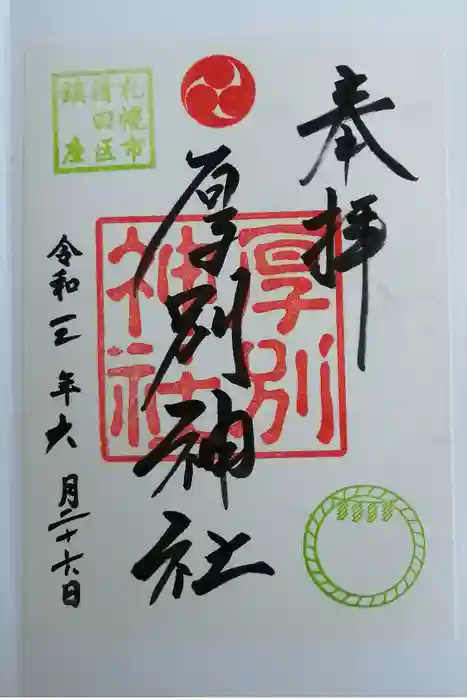 奉拝
厚別神社
厚別
神社
札幌市
清田区
鎮座
令和三年六月二十六日